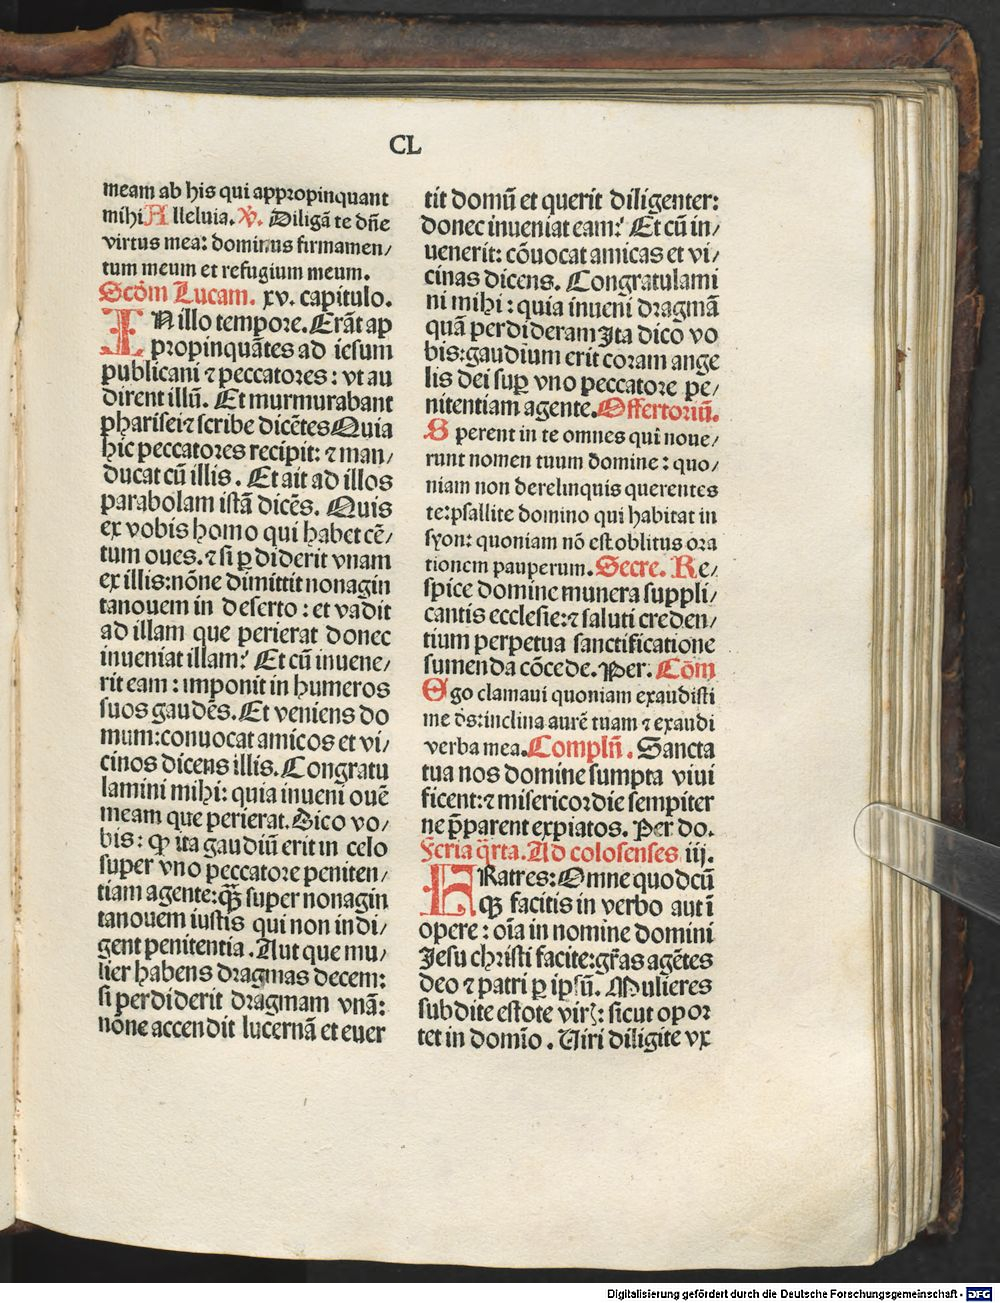 CL
meam ab his qui appropinquant
mihi Alleluia. V̷. Diligā te dn̄e
virtus mea: dominus firmamen/
tum meum et refugium meum.
Scd̄m Lucam. xv. capitulo.
IN illo tempore. Erāt ap
propinquātes ad iesum
publicani ⁊ peccatores: vt au
dirent illū. Et murmurabant
pharisei ⁊ scribe dicētes Quia
hic peccatores recipit: ⁊ man/
ducat cū illis. Et ait ad illos
parabolam istā dicēs. Quis
ex vobis homo qui habet cē/
tum oues. ⁊ si ꝑdiderit vnam
ex illis: nōne dimittit nonagin
tanouem in deserto: et vadit
ad illam que perierat donec
inueniat illam? Et cū inuene/
rit eam: imponit in humeros
suos gaudēs. Et veniens do
mum: conuocat amicos et vi/
cinos dicens illis. Congratu
lamini mihi: quia inueni ouē
meam que perierat. Dico vo/
bis: ꝙ ita gaudiū erit in celo
super vno peccatore peniten/
tiam agente: ꝙ̄ super nonagin
tanouem iustis qui non indi/
gent penitentia. Aut que mu/
lier habens dragmas decem:
si perdiderit dragmam vnā:
nōne accendit lucernā et euer
tit domū et querit diligenter:
donec inueniat eam? Et cū in/
uenerit: cōuocat amicas et vi/
cinas dicens. Congratulami
ni mihi: quia inueni dragmā
quā perdideram Ita dico vo
bis: gaudium erit coram ange
lis dei suꝑ vno peccatore pe/
nitentiam agente. Offertoriū.
Sperent in te omnes qui noue/
runt nomen tuum domine: quo/
niam non derelinquis querentes
te: psallite domino qui habitat in
syon: quoniam nō est oblitus ora
tionem pauperum. Secre. Re/
spice domine munera suppli/
cantis ecclesie: ⁊ saluti creden/
tium perpetua sanctificatione
sumenda cōcede. Per. Cōm
Ego clamaui quoniam exaudisti
me d̄s: inclina aurē tuam ⁊ exaudi
verba mea. Compln̄. Sancta
tua nos domine sumpta viui
ficent: ⁊ misericordie sempiter
ne p̄parent expiatos. Per do.
Feria q̄rta. Ad colosenses iij.
FRatres: Omne quodcū
qꝫ facitis in verbo aut ī
opere: oīa in nomine domini
Jesu christi facite: gr̄as agētes
deo ⁊ patri ꝑ ipsū. Mulieres
subdite estote virꝭ: sicut opor
tet in domīo. Uiri diligite vx
Digitalisierung gefördert durch die Deutsche Forschungsgemeinschaft - DFG